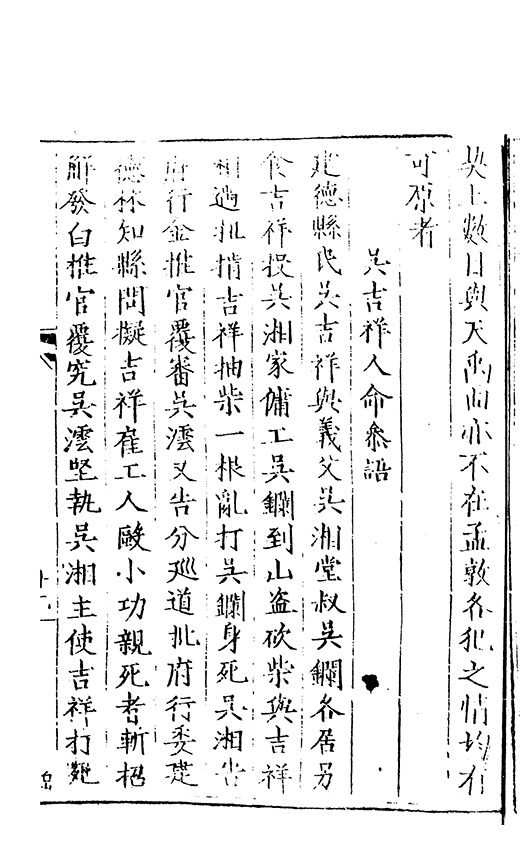 上數日與天雨亦不在孟敦各犯之情均有
可原者
吳吉祥人命參語
建德縣民吳吉祥與義父吳湘堂叔吳鑭各居另
食吉祥投吳湘家傭工吳鑭到山盜砍柴與吉祥
相遇扯揹吉祥抽柴一根亂打吳鑭身死吳湘告
府行金推官覆審吳澐又告分廵道批府行委建
德林知縣問擬吉祥雇工人毆小功親死者斬招
觧發白推官覆究吳澐堅執吳湘主使吉祥打死